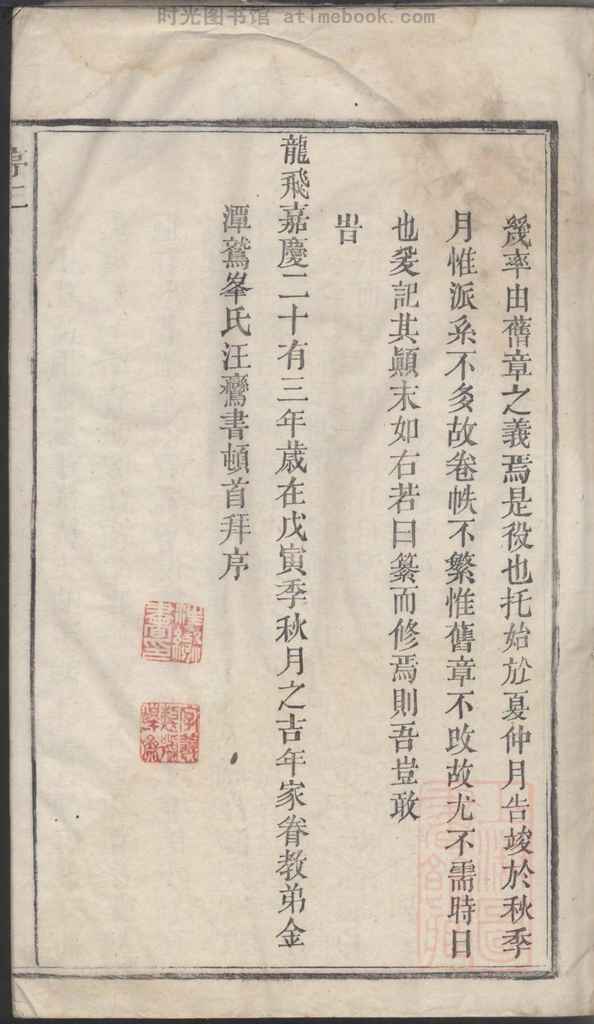 时光图书馆 atimebook.com
幾率由舊章之義焉是役也托始於夏仲月告竣於秋季
月惟派系不多故卷帙不繁惟舊章不改故尤不需時日
也爰記其顛末如右若曰纂而修焉則吾豈敢
旹
龍飛嘉慶二十有三年歲在戊寅季秋月之吉年家眷教弟金
潭鷲峯氏汪鸞書頓首拜序
序三